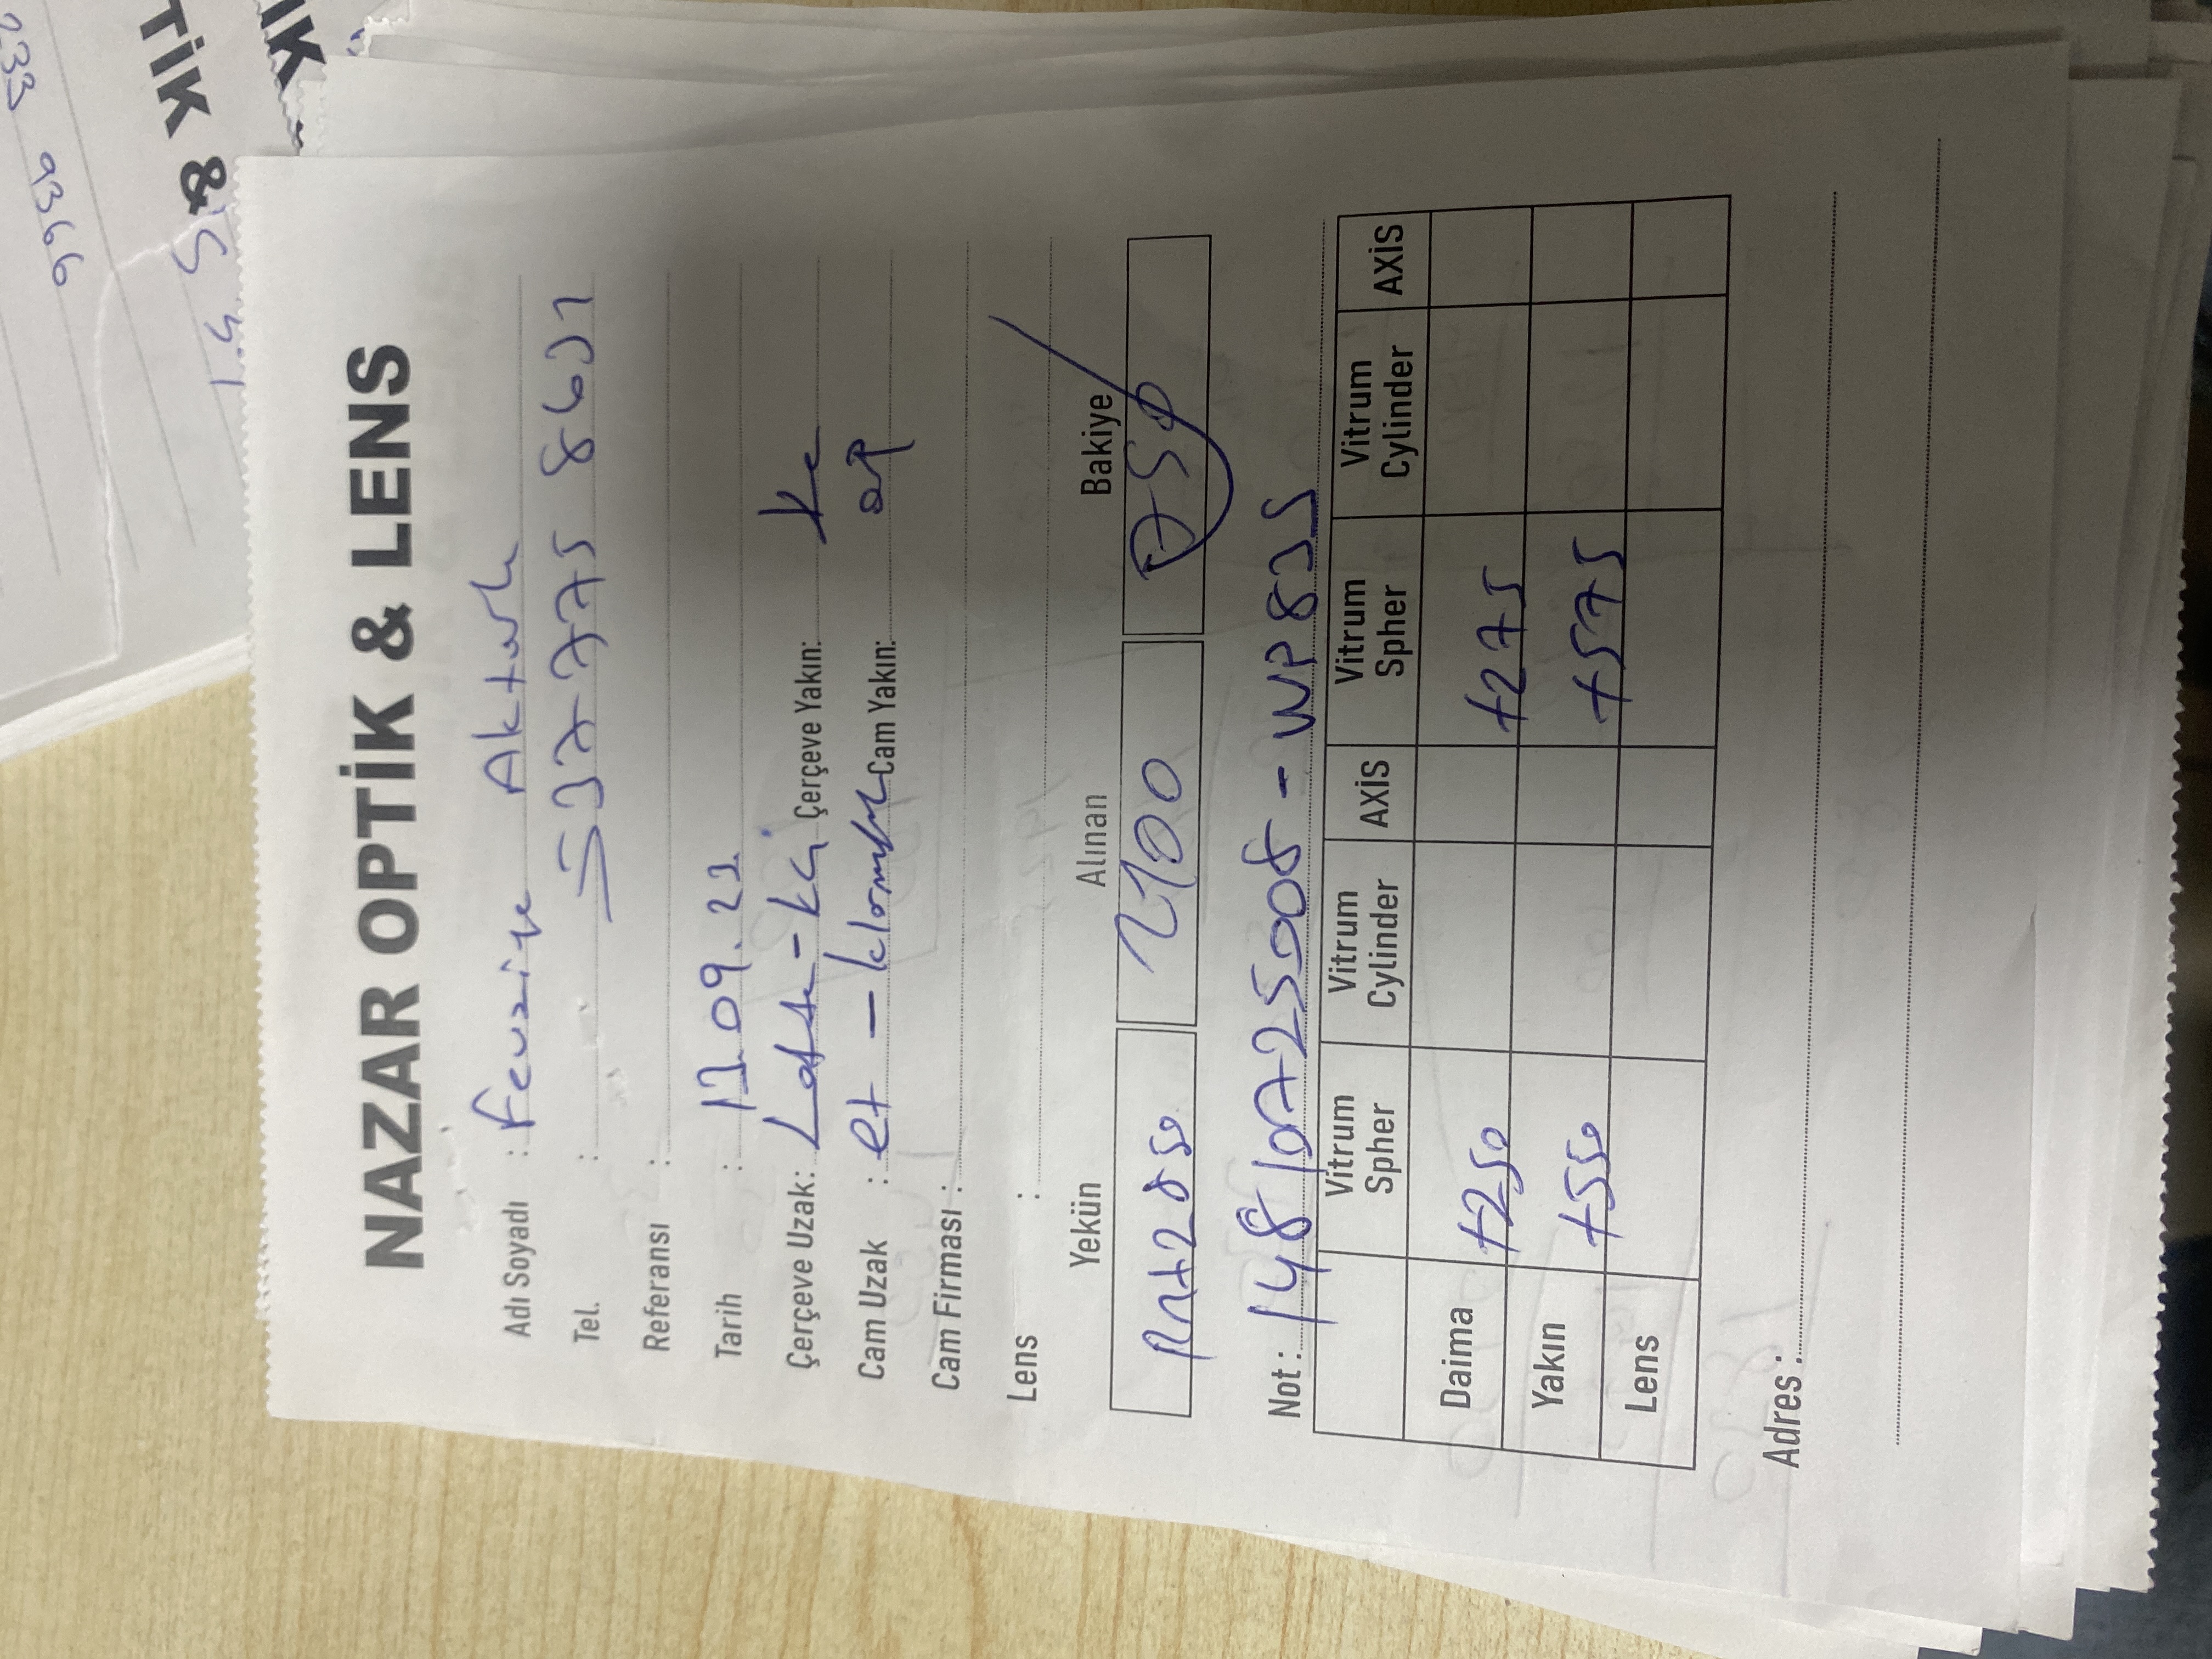 233 9366
TİK &
IK
NAZAR OPTİK & LENS
Adı Soyadı : Fevziye Aktürk
Tel. : 537 775 8631
Referansı :
Tarih : 13.09.23
Çerçeve Uzak: Çerçeve Yakın:
Cam Uzak : et - Cam Yakın:
Cam Firması :
Lens :
Yekün Alınan Bakiye
2850 2100 750
Not : 14810725008 - WP835
Vitrum Spher Vitrum Cylinder AXİS Vitrum Spher Vitrum Cylinder AXİS
Daima +250 +275
Yakın +550 +575
Lens
Adres :